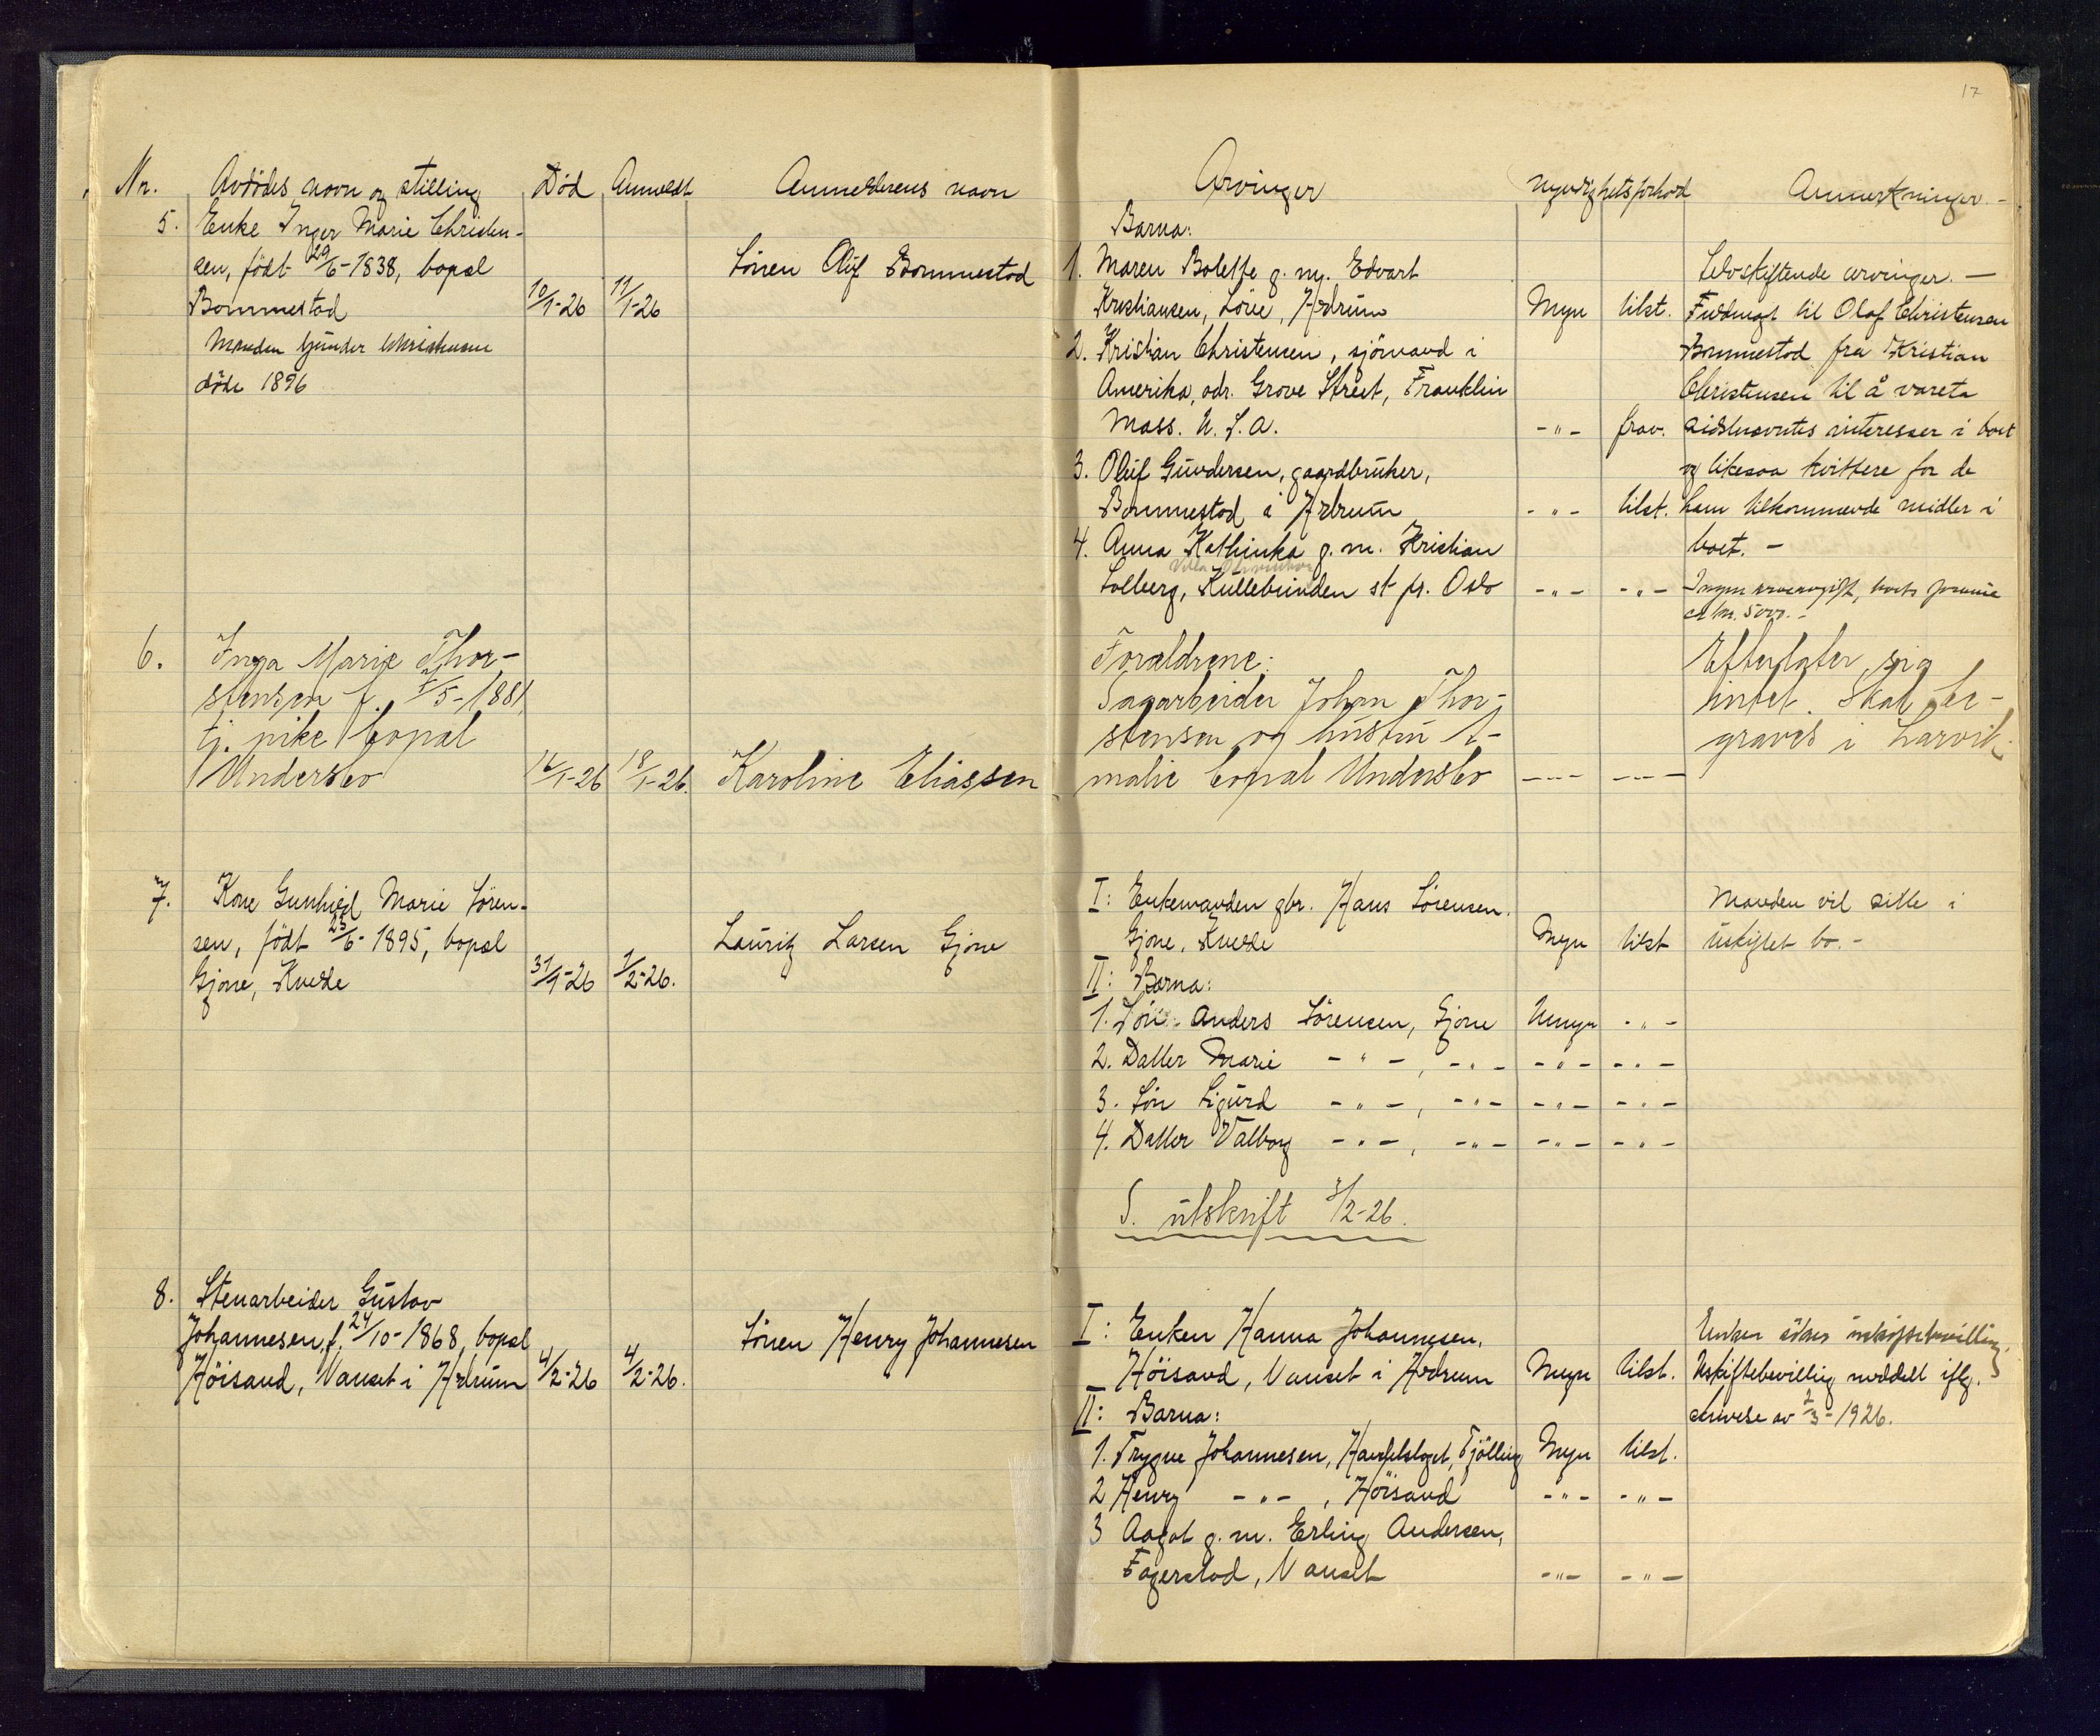 17
Nr. Avdødes navn og stilling Død Anmeldt Anmelderens navn
Arvinger Myndighetsforhold Anmerkninger -
5. Enke Inger Marie Christen-
sen, født 29/6-1838, bopæl
Bommestad 10/1-26 11/1-26
Manden Gunder Christensen
døde 1896
Sönen Oluf Bommestad
Barna:
1. Maren Bolette g. m. Edvart
Kristiansen, Hedrum Myn tilst.
2. Kristian Christensen, sjömand i
Amerika, adr. Grove Street, Franklin
Mass. U. S. A. -"- frav.
3. Oluf Gundersen, gaardbruker,
Bommestad i Hedrum -"- tilst.
4. Anna Kathinka g. m. Kristian
Solberg, Kullebunden st pr. Oslo -"- -"-
Selvskiftende arvinger. —
Fuldmagt til Olaf Christensen
Bommestad fra Kristian
Christensen til å vareta
sidstnevntes interesser i boet
og likesaa kvittere for de
ham tilkommende midler i
boet. -
Ingen arveavgift, boets formue
ca kr. 500. -
6. Inga Marie Thor-
stensen f. /5-1881,
tj. pike bopæl
Undersbo 16/1-26 18/1-26. Karoline Eliassen
Foreldrene:
Sagarbeider Johan Thor-
stensen og hustru A-
malie bopæl Undersbo -"- -"-
Efterlater sig
intet. Skal be-
graves i Larvik.
7. Kone Gunhild Marie Sören-
sen, født 23/6-1895, bopæl
Gjone, Kvelde 31/1-26 1/2-26.
Lauritz Larsen Gjone
I: Enkemanden gbr. Hans Sörensen.
Gjone, Kvelde Myn tilst
II: Barna:
1. Sön Anders Sörensen, Gjone Umyn -"-
2. Datter Marie -"-, -"- -"- -"-
3. Sön Sigurd -"-, -"- -"- -"-
4. Datter Valborg -"-, -"- -"- -"-
S. utskrift 3/2-26.
Manden vil sitte i
uskiftet bo. -
8. Stenarbeider Gustav
Johannesen, f. 24/10-1868, bopæl
Höisand, Nanset i Hedrum 4/2-26 4/2-26.
Sönen Henry Johannesen
I: Enken Hanna Johannesen,
Höisand, Nanset i Hedrum Myn tilst.
II: Barna:
1. Trygve Johannesen, Tjölling Myn tilst.
2 Henry -"-, Höisand -"- -"-
3 Aagot g. m. Erling Andersen,
Fagerstad, Nanset -"- -"-
Enken söker uskiftebevilling.
Uskiftebevilling meddelt iflg.
skrivelse av 2/3-1926.